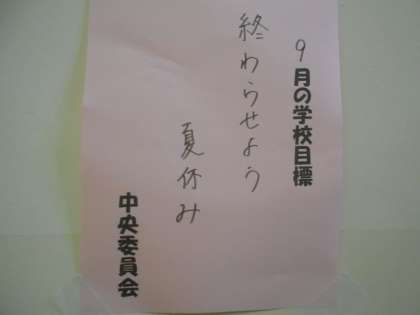 9月の学校目標
終わらせよう
夏休み
中央委員会